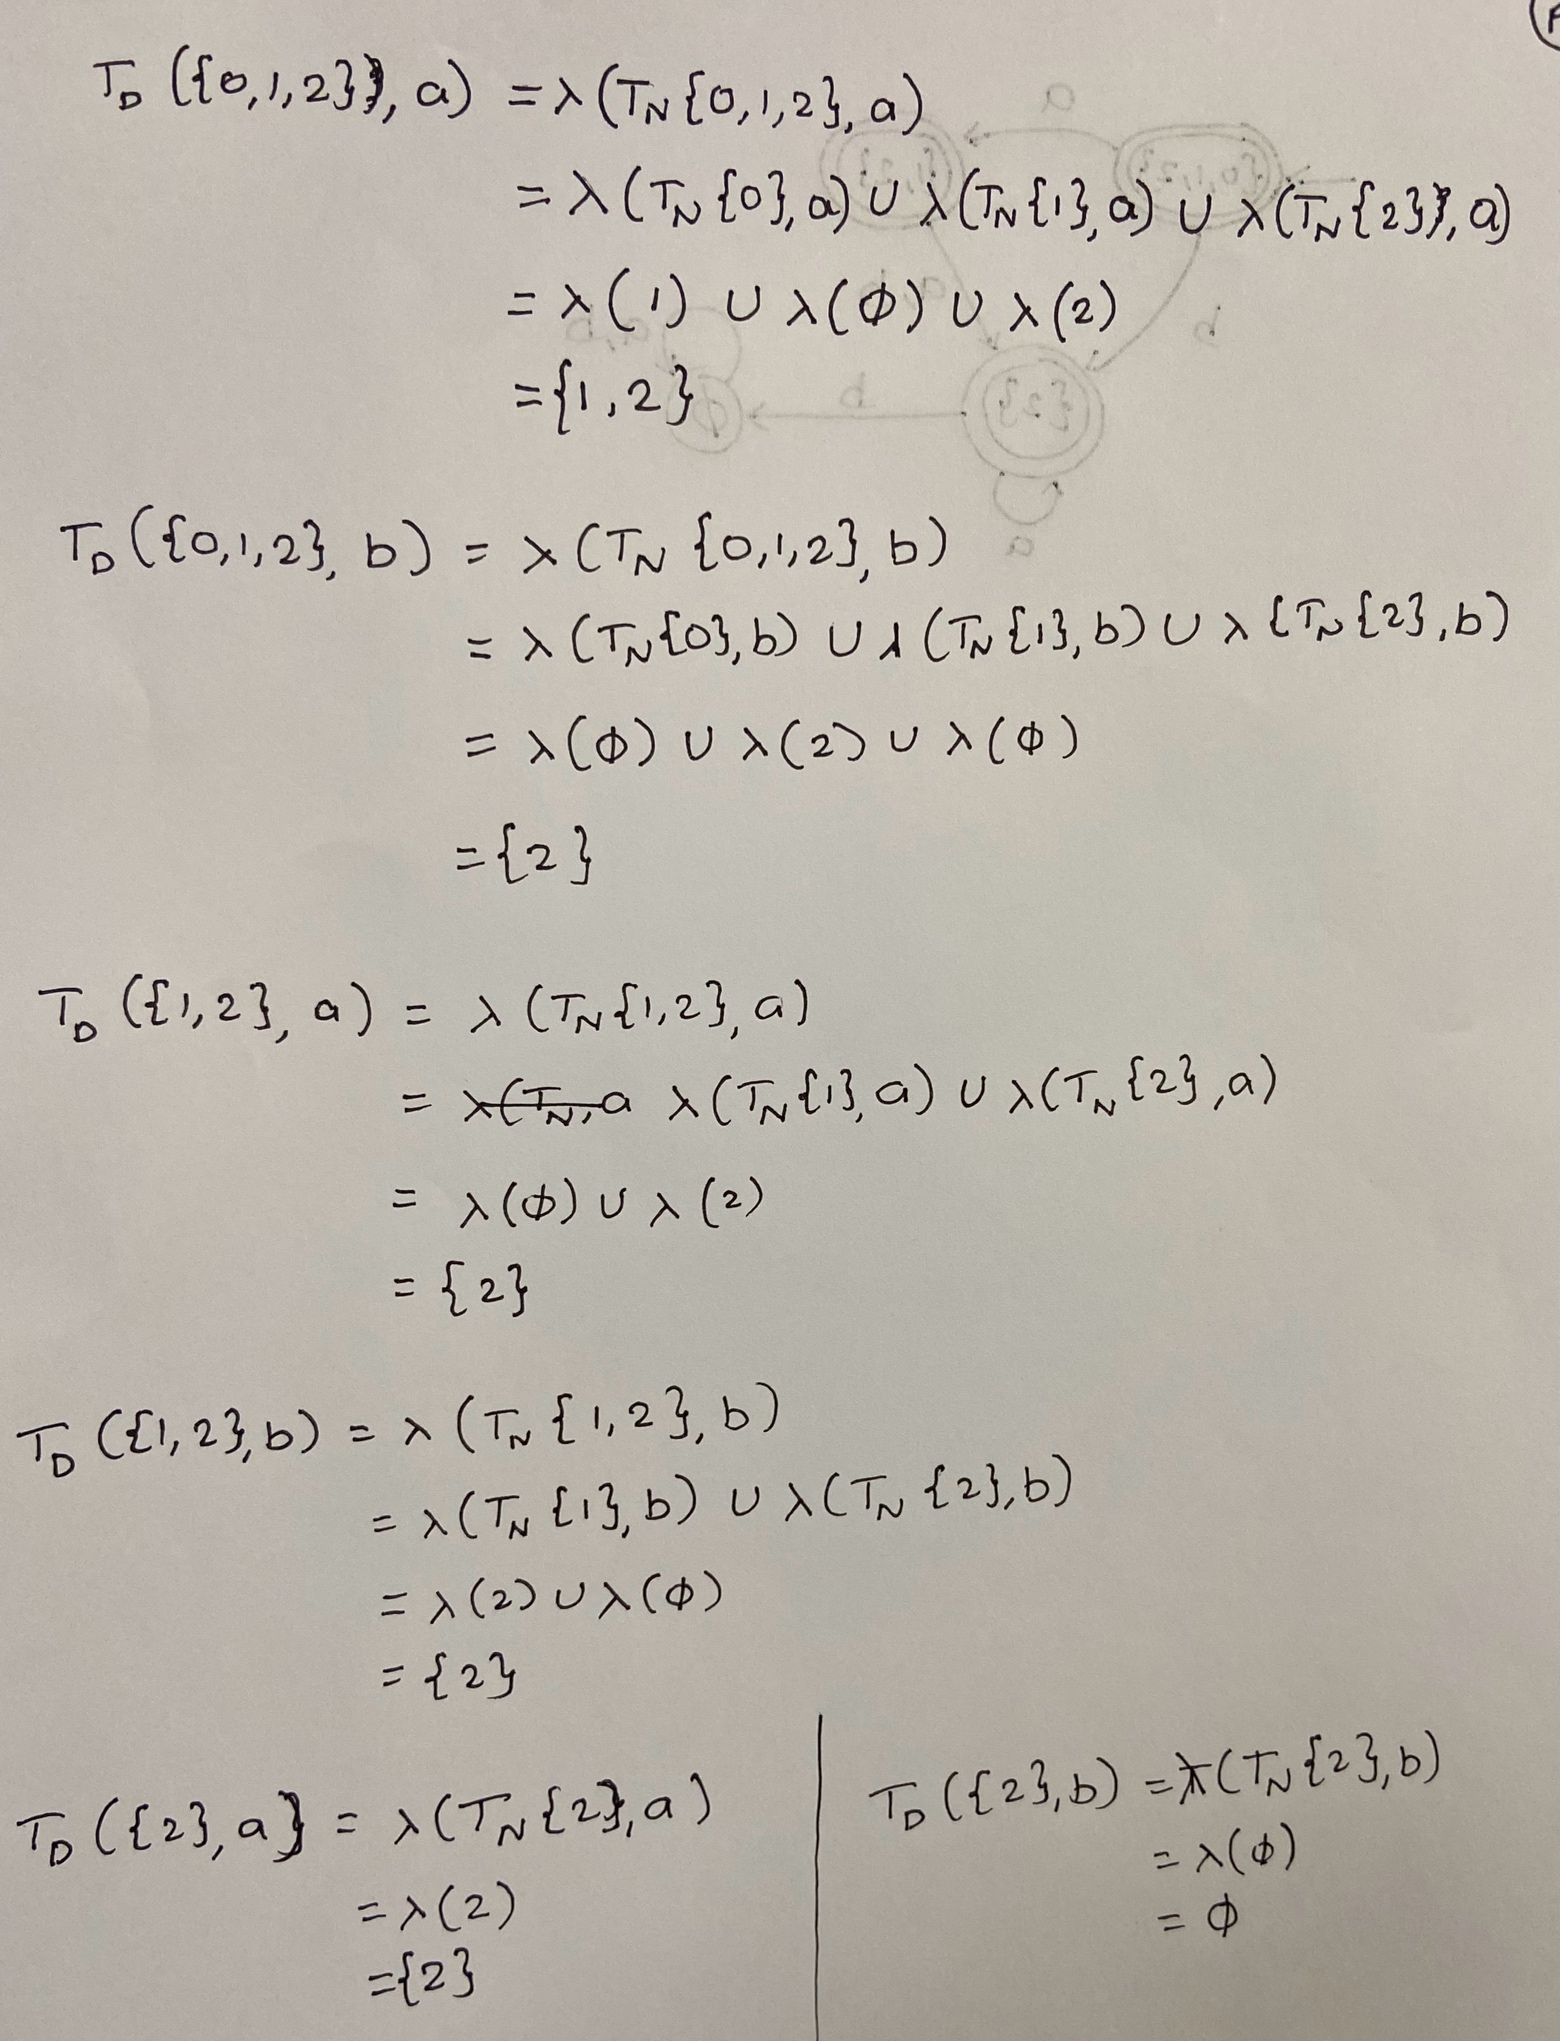 T_D ({0,1,2}, a) = λ(T_N {0,1,2}, a)
= λ(T_N {0}, a) ∪ λ(T_N {1}, a) ∪ λ(T_N {2}, a)
= λ(1) ∪ λ(ϕ) ∪ λ(2)
= {1,2}
T_D ({0,1,2}, b) = λ(T_N {0,1,2}, b)
= λ(T_N {0}, b) ∪ λ(T_N {1}, b) ∪ λ{T_N {2}, b)
= λ(ϕ) ∪ λ(2) ∪ λ(ϕ)
= {2}
T_D ({1,2}, a) = λ(T_N {1,2}, a)
= λ(T_N, a λ(T_N {1}, a) ∪ λ(T_N {2}, a)
= λ(ϕ) ∪ λ(2)
= {2}
T_D ({1,2}, b) = λ(T_N {1,2}, b)
= λ(T_N {1}, b) ∪ λ(T_N {2}, b)
= λ(2) ∪ λ(ϕ)
= {2}
T_D ({2}, a} = λ(T_N {2}, a)
= λ(2)
= {2}
T_D ({2}, b) = λ(T_N {2}, b)
= λ(ϕ)
= ϕ